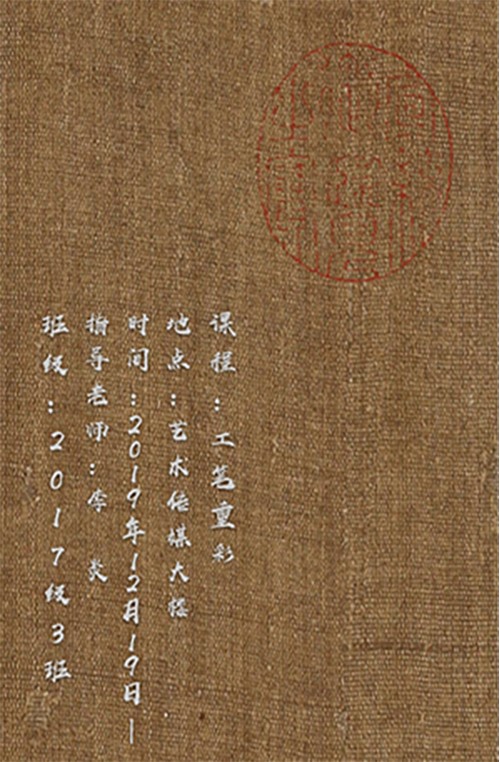 课程：工笔重彩
地点：艺术传媒大楼
时间：2019年12月19日—
指导老师：李炎
班级：2017级3班